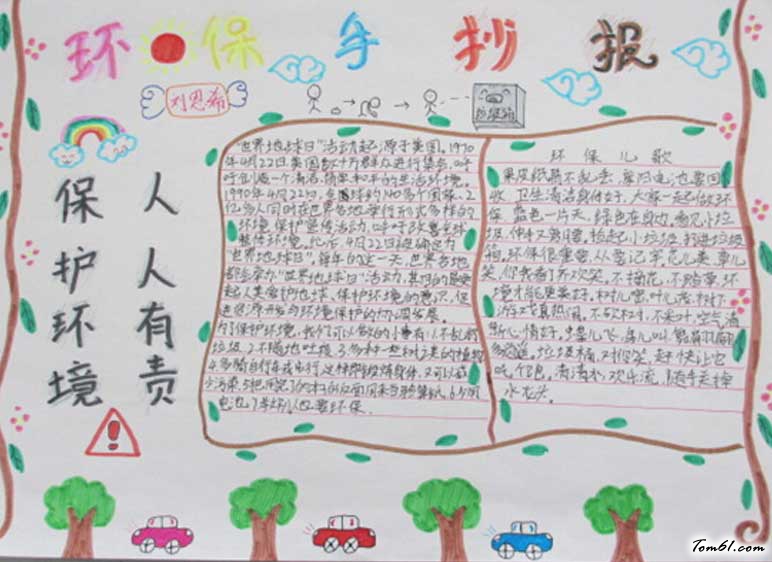 环保手抄报
刘思希
垃圾箱
保护环境
人人有责
"世界地球日"活动起源于美国。1970
年4月22日,美国数十万群众进行集会,呼
吁创造一个清洁、简单和平的生活环境。
1990年4月22日,全球约140多个国家、2
亿多人同时在世界各地举行形式多样的
环境保护宣传活动,呼吁改善全球
整体环境。此后,4月22日被确定为
"世界地球日"。每年的这一天,世界各地
都会举办"世界地球日"活动,其目的是唤
起人类爱护地球、保护环境的意识,促
进资源开发与环境保护的协调发展。
为了保护环境,我们可以做的事有:1不乱扔
垃圾 2不随地吐痰 3多种一些对之美的植物
4多骑自行车或步行,这样即能锻炼身体,又可以减
电 7.多劝人也要环保.
环保儿歌
果皮纸屑不乱丢,废旧电池要回
收,卫生清洁身体好,大家一起做环
保。蓝色一片天,绿色在身边,看见小垃
圾,伸手又弯腰。捡起小垃圾,扔进垃圾
箱。环保很重要,从要记牢。花儿美,草儿
笑,你我看了齐欢笑,不摘花,不踏草,环
境才能更美好。树儿密,叶儿茂,树下
水龙头。
Tom61.com